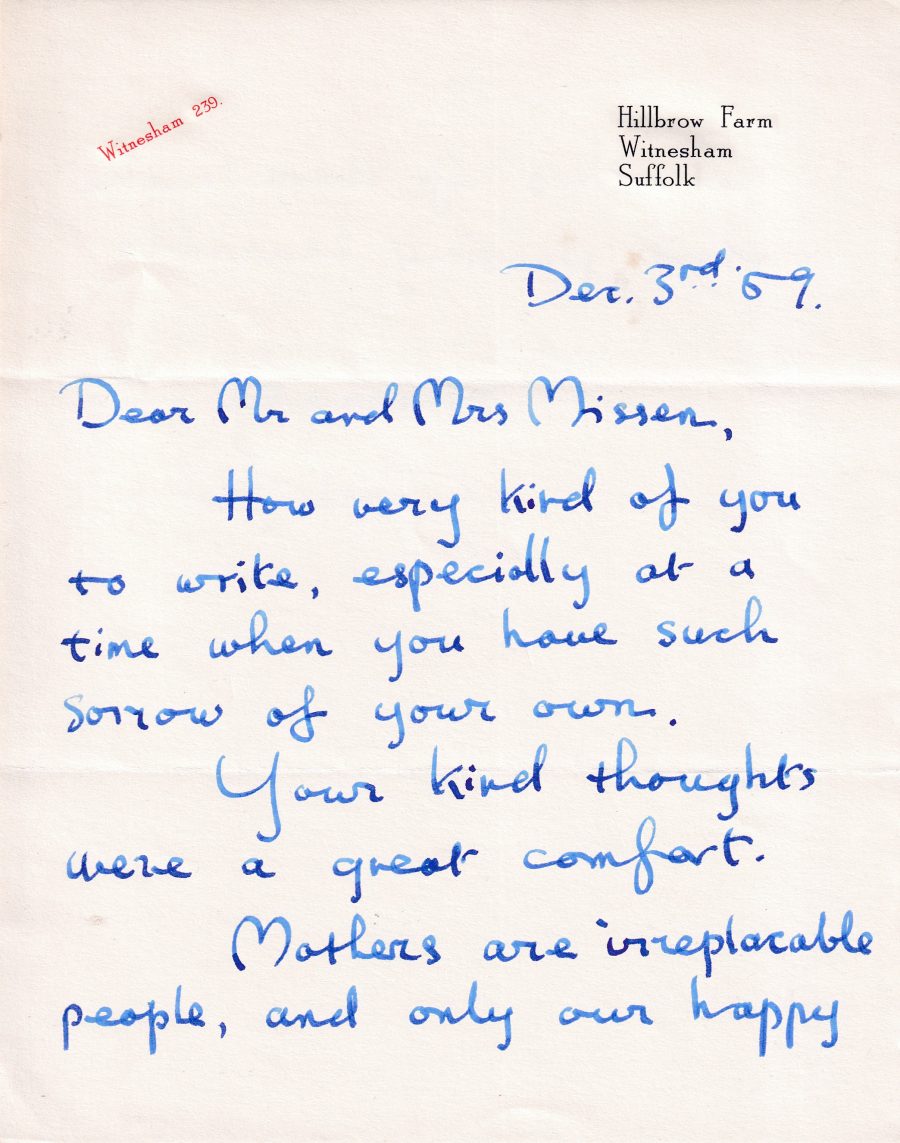 Witnesham 239.
Hillbrow Farm
Witnesham
Suffolk
Dec. 3rd. 59.
Dear Mr and Mrs Missen,
How very kind of you
to write, especially at a
time when you have such
sorrow of your own.
Your kind thoughts
were a great comfort.
Mothers are irreplacable
people, and only our happy